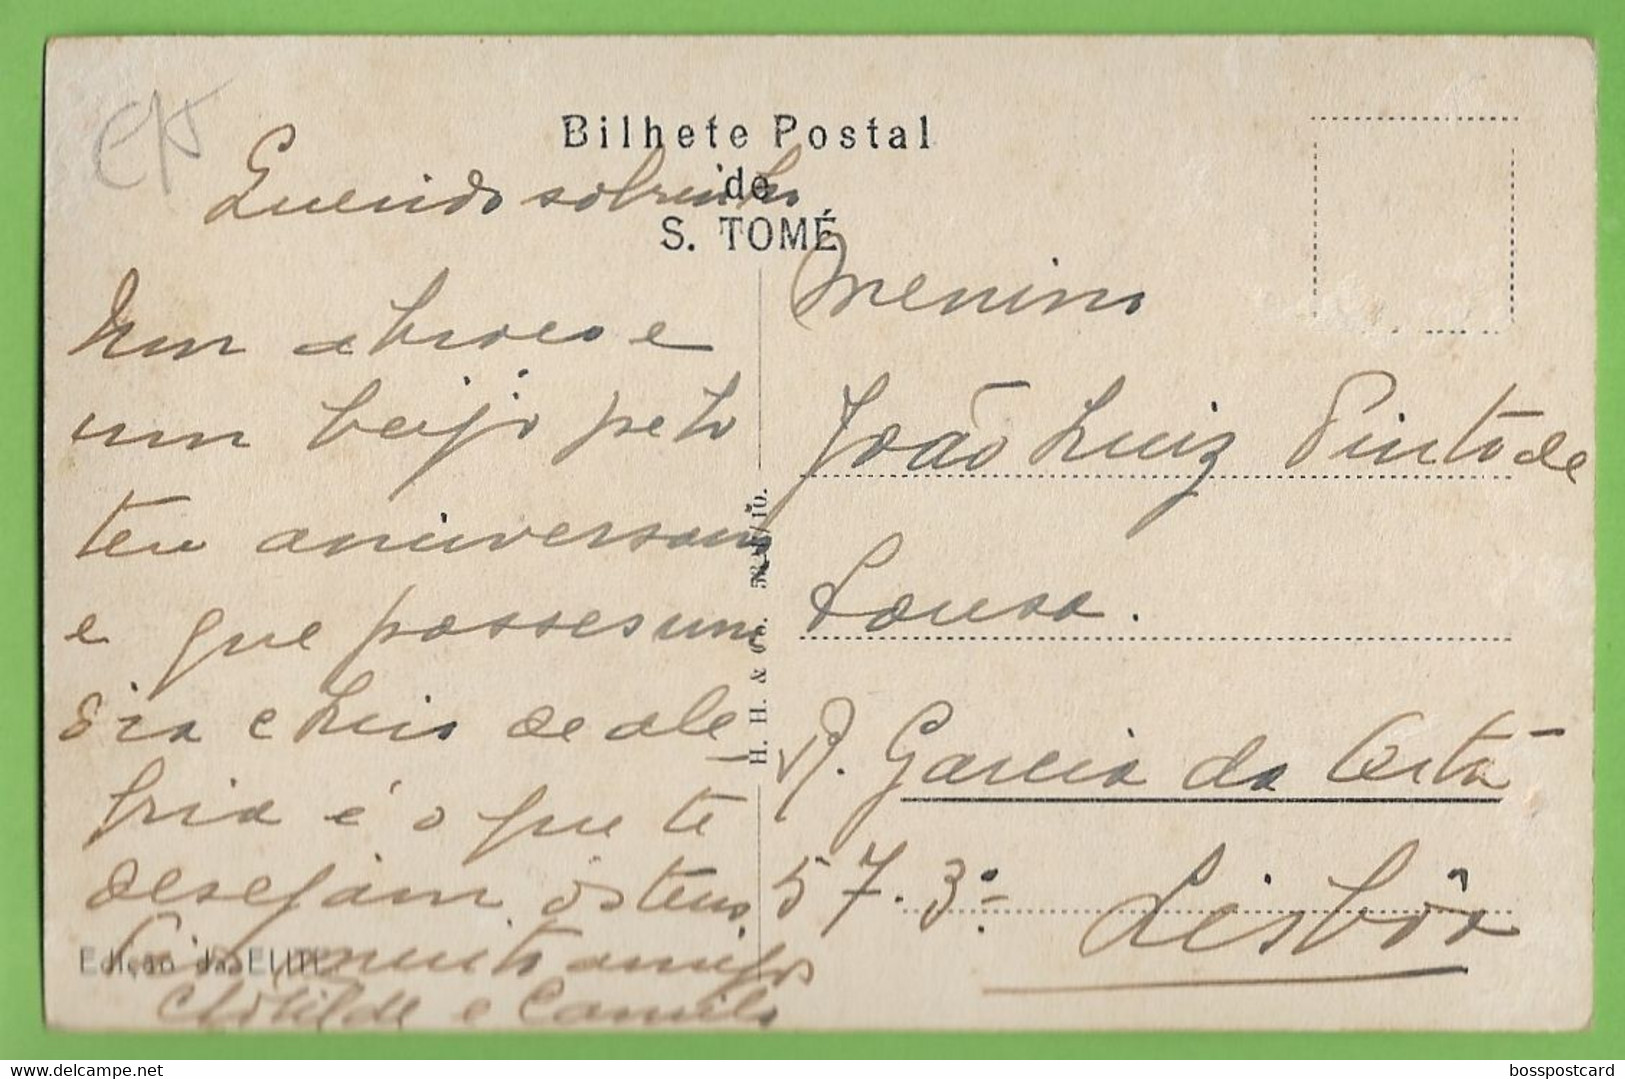 Bilhete Postal
de
S. TOMÉ
Querido sobrinho
Um abraço e
um beijo pelo
teu aniversario
e que passes um
dia cheio de ale
gria é o que te
desejam os teus
tios muito amigos
Clotilde e Camilo
Edição da ELITE
H. H. & Co.
Menino
João Luiz Pinto de
Sousa.
R. Garcia da Orta
57.3º
Lisbôa
bosspostcard
delcampe.net